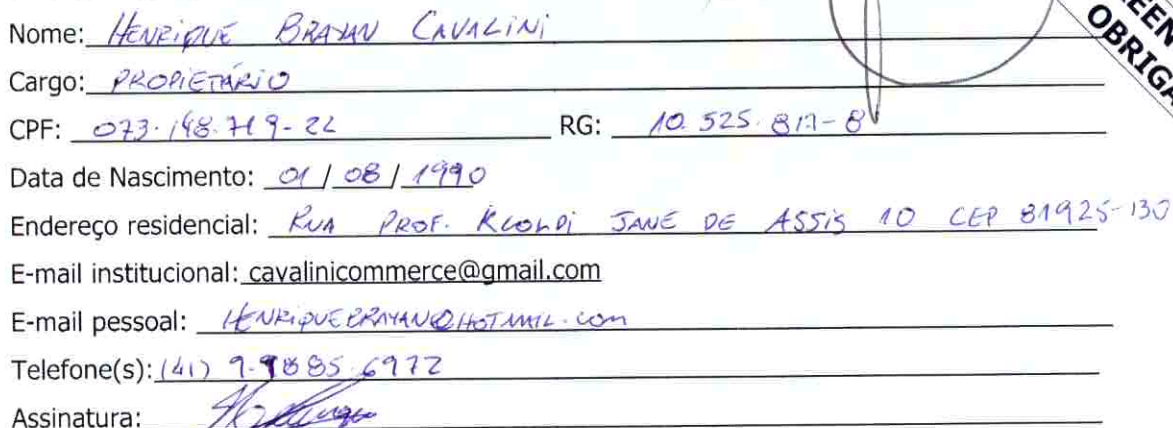 Nome: HENRIQUE BRAYAN CAVALINI
Cargo: PROPIETÁRIO
CPF: 073.148.719-22 RG: 10.525.817-8
Data de Nascimento: 01 / 08 / 1990
Endereço residencial: RUA PROF. JANE DE ASSIS 10 CEP 81925-130
E-mail institucional: cavalinicommerce@gmail.com
E-mail pessoal: HENRIQUEBRAYAN@HOTMAIL.com
Telefone(s): (41) 9.9885.6972
Assinatura: